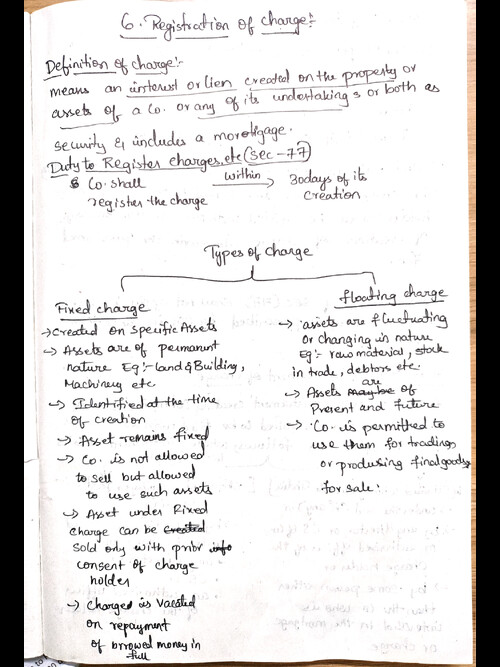 6. Registration of charge:
Definition of charge:-
means an interest or lien created on the property or
assets of a Co. or any of its undertakings or both as
security & includes a mortgage.
Duty to Register charges, etc (sec-77)
Co. shall within → 30 days of its
register the charge creation
Types of charge
Fixed charge
→ Created on specific Assets
→ Assets are of permanent
nature Eg:- land & Building,
Machinery etc
→ Identified at the time
of creation
→ Asset remains fixed
→ Co. is not allowed
to sell but allowed
to use such assets
→ Asset under Fixed
charge can be created
sold only with prior info
consent of charge
holder
→ Charged is Vacated
on repayment
of brrowed money in
full
floating charge
→ assets are fluctuating
or changing in nature
Eg:- raw material, stock
in trade, debtors etc.
→ Assets may be are of
Present and future
→ Co. is permitted to
use them for trading
or produsing final goods
for sale.